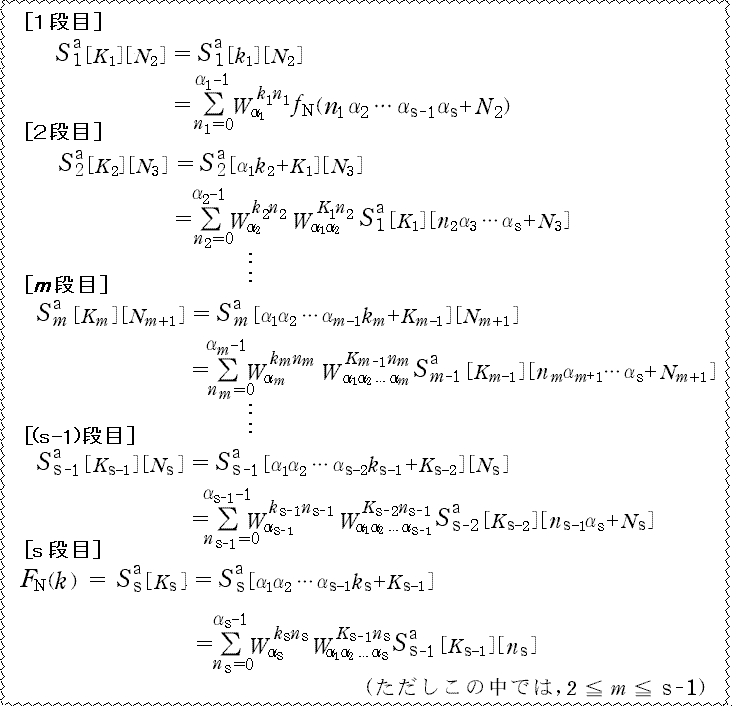 [1段目]
S₁ᵃ[K₁][N₂] = S₁ᵃ[k₁][N₂]
= Σ_{n₁=0}^{α₁-1} W_{α₁}^{k₁n₁} f_N(n₁α₂⋯α_{s-1}α_s+N₂)
[2段目]
S₂ᵃ[K₂][N₃] = S₂ᵃ[α₁k₂+K₁][N₃]
= Σ_{n₂=0}^{α₂-1} W_{α₂}^{k₂n₂} W_{α₁α₂}^{K₁n₂} S₁ᵃ[K₁][n₂α₃⋯α_s+N₃]
⋮
[m段目]
S_mᵃ[K_m][N_{m+1}] = S_mᵃ[α₁α₂⋯α_{m-1}k_m+K_{m-1}][N_{m+1}]
= Σ_{n_m=0}^{α_m-1} W_{α_m}^{k_mn_m} W_{α₁α₂…α_m}^{K_{m-1}n_m} S_{m-1}ᵃ[K_{m-1}][n_mα_{m+1}⋯α_s+N_{m+1}]
⋮
[(s-1)段目]
S_{s-1}ᵃ[K_{s-1}][N_s] = S_{s-1}ᵃ[α₁α₂⋯α_{s-2}k_{s-1}+K_{s-2}][N_s]
= Σ_{n_{s-1}=0}^{α_{s-1}-1} W_{α_{s-1}}^{k_{s-1}n_{s-1}} W_{α₁α₂…α_{s-1}}^{K_{s-2}n_{s-1}} S_{s-2}ᵃ[K_{s-2}][n_{s-1}α_s+N_s]
[s段目]
F_N(k) = S_sᵃ[K_s] = S_sᵃ[α₁α₂⋯α_{s-1}k_s+K_{s-1}]
= Σ_{n_s=0}^{α_s-1} W_{α_s}^{k_sn_s} W_{α₁α₂…α_s}^{K_{s-1}n_s} S_{s-1}ᵃ[K_{s-1}][n_s]
(ただしこの中では, 2 ≦ m ≦ s-1)